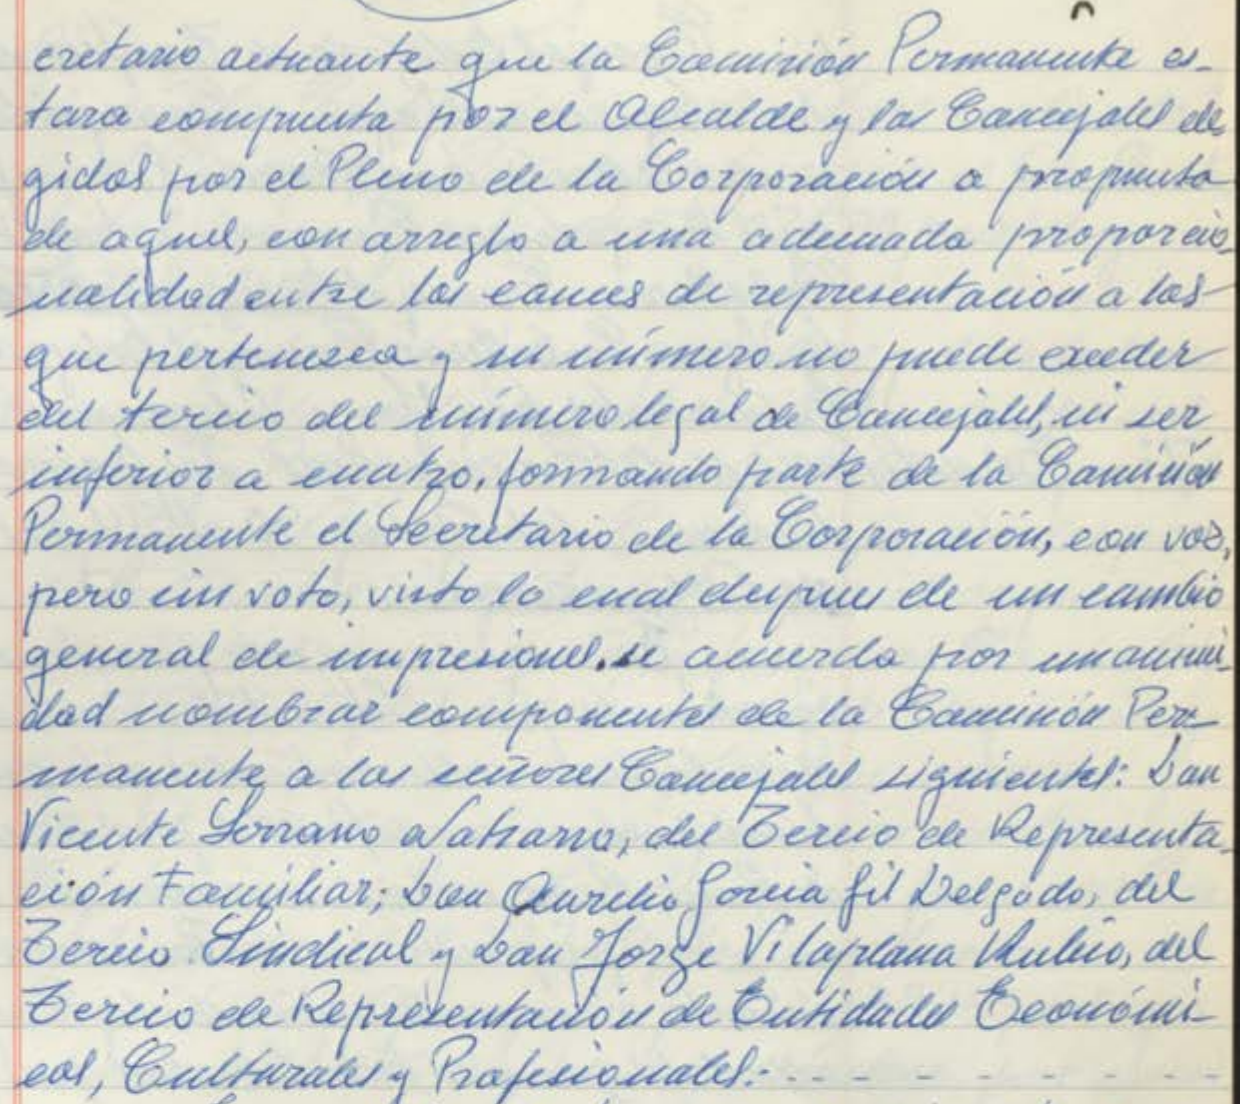 cretario actuante que la Comisión Permanente es-
tara compuesta por el Alcalde y los Concejales ele
gidos por el Pleno de la Corporación a propuesta
de aquel, con arreglo a una adecuada proporcio-
nalidad entre los cauces de representación a los
que pertenezca y su número no puede exceder
del tercio del número legal de Concejales, ni ser
inferior a cuatro, formando parte de la Comisión
Permanente el Secretario de la Corporación, con voz,
pero sin voto, visto lo cual despues de un cambio
general de impresiones, se acuerda por unanimi-
dad nombrar componentes de la Comisión Per-
manente a los señores Concejales siguientes: Don
Vicente Serrano Navarro, del Tercio de Representa-
ción Familiar; Don Aurelio Garcia Gil Delgado, del
Tercio Sindical y Don Jorge Vilaplana Rubio, del
Tercio de Representación de Entidades Económi-
cas, Culturales y Profesionales:- - - - - - - - -